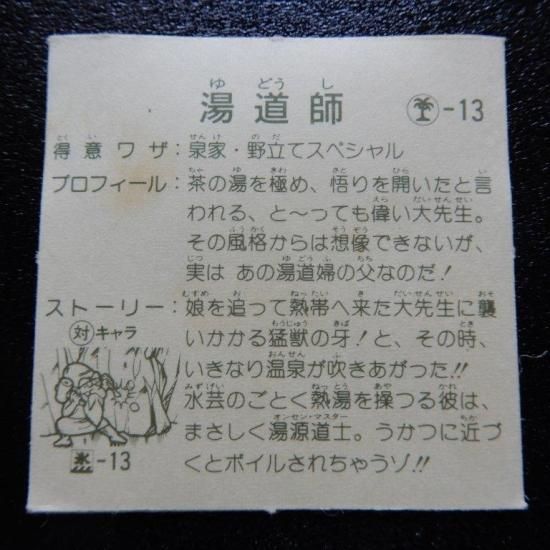 湯道師 -13
得意ワザ：泉家・野立てスペシャル
プロフィール：茶の湯を極め、悟りを開いたと言
われる、と〜っても偉い大先生。
その風格からは想像できないが、
実は あの湯道婦の父なのだ！
ストーリー：娘を追って熱帯へ来た大先生に襲
いかかる猛獣の牙！と、その時、
いきなり温泉が吹きあがった!!
水芸のごとく熱湯を操つる彼は、
まさしく湯源道士。うかつに近づ
くとボイルされちゃうゾ!!
対キャラ
氷-13